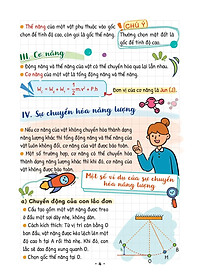 • Thế năng của một vật phụ thuộc vào gốc
chọn để tính độ cao, còn gọi là gốc thế năng.
CHÚ Ý
Thường chọn mặt đất là
gốc để tính độ cao.
III. Cơ năng
• Động năng và thế năng của vật có thể chuyển hóa qua lại lẫn nhau.
• Cơ năng của một vật là tổng động năng và thế năng.
W = Wđ + Wt = 1/2 mv² + P.h
Đơn vị của cơ năng là Jun (J).
IV. Sự chuyển hóa năng lượng
• Nếu cơ năng của vật không chuyển hóa thành
dạng năng lượng khác thì động năng và thế năng của
vật luôn không đổi, cơ năng của vật được bảo toàn.
• Một số trường hợp, cơ năng có thể chuyển hóa
thành dạng năng lượng khác thì khi đó, cơ năng của
vật không được bảo toàn.
Một số ví dụ của sự chuyển
hóa năng lượng
a) Chuyển động của con lắc đơn
• Cấu tạo gồm một vật nặng được treo
ở đầu một sợi dây nhẹ, không dãn.
• Cách kích thích: Từ vị trí cân bằng O
ban đầu, vật nặng được kéo lệch lên một
độ cao h tại A rồi thả nhẹ. Khi đó, con
lắc sẽ dao động xung quanh O.
• Chọn gốc thế năng tại O.
4